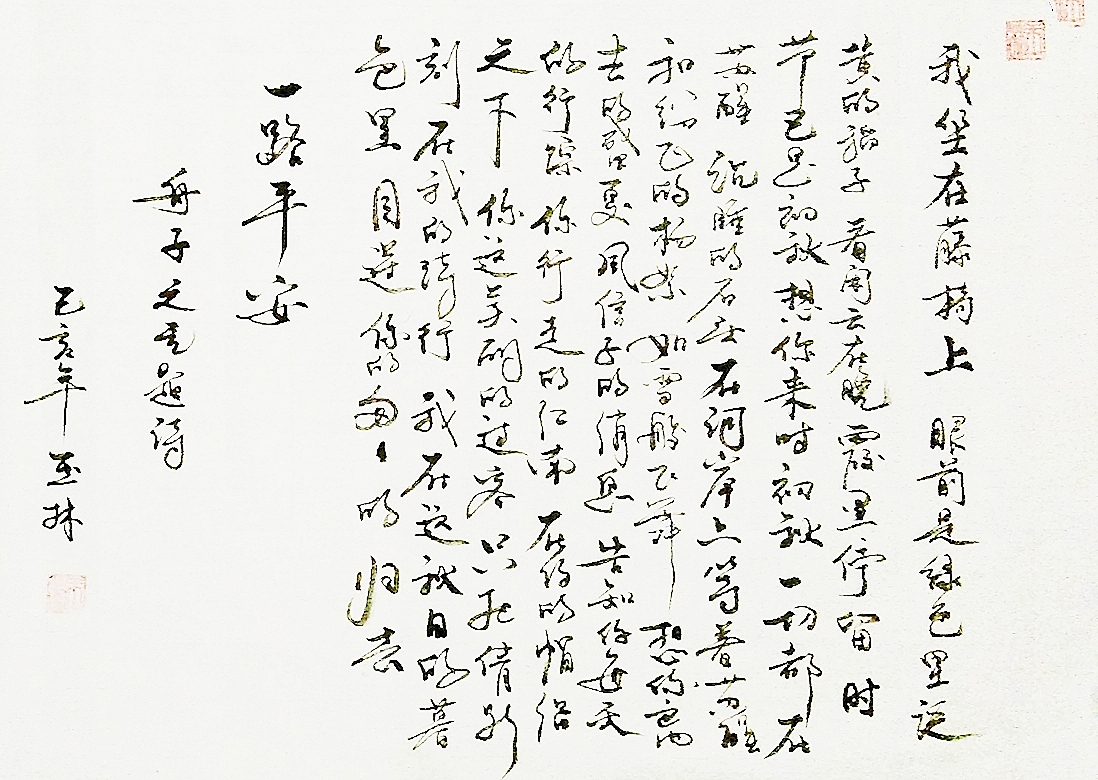 我坐在藤椅上 眼前是绿色里泛
黄的稻子 看闲云在晚霞里停留 时
节已是初秋 想你来时初秋 一切都在
苏醒 沉睡的石头在河岸上等着苏醒
和纷飞的杨絮 如雪般飞舞 想你离
去的盛夏 风信子的消息 告知你每天
的行踪 你行走的江南 在你的眼
天下 你这美丽的过客 只把倩影
刻在我的诗行 我在这秋日的暮
色里 目送你的匆匆的归去
一路平安
舟子之 题诗
己亥年 玉林